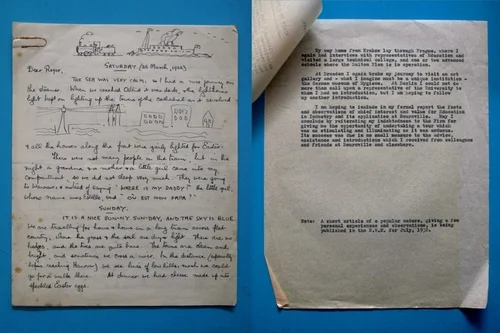 SATURDAY (26 March, 1932)
Dear Roger,
THE SEA WAS VERY CALM, so I had a nice journey on
the steamer. When we reached Calais it was dark, the lighthouse
light kept on lighting up the towers of the cathedral as it revolved
& all the houses along the front were gaily lighted for Easter.
There were not many people in the train, but in
the night a grandma & a mother & a little girl came into my
compartment, so we did not sleep very much. They were going
to & instead of saying "WHERE IS MY DADDY" the little girl,
whose name was said "OU EST MON PAPA"
SUNDAY.
IT IS A NICE SUNNY SUNDAY, AND THE SKY IS BLUE
We are travelling for hours & hours in a long train across flat
country, where the grass & the soil are light. There are no
hedges, and the trees are quite bare. The towns are clean and
bright, and sometimes we cross a river. In the distance, (especially
before reaching ) we see lines of low hills, which we could
go for a walk there. At dinner we had cheese made up into
speckled Easter eggs.
My way home from Krakow lay through Prague, where I
again had interviews with representatives of Education and
visited a large technical college, and one or two advanced
schools where the Dalton Plan is in operation.
At Dresden I again broke my journey to visit an art
gallery and - what I imagine must be a unique institution -
the German museum of Hygiene. At Berlin I could do no
more than call upon a representative of the University to
whom I had an introduction, but I am hoping to follow up
by another introduction.
I am hoping to include in my formal report the facts
and observations of chief interest and value for Education
in Industry and its application at Bournville. May I
conclude by reiterating my indebtedness to the Firm for
giving me the opportunity of undertaking a tour which
was as stimulating and illuminating as it was arduous.
Its success was due in no small measure to the advice,
assistance and introductions which I received from colleagues
and friends at Bournville and elsewhere.
Note: A short article of a popular nature, giving a few
personal experiences and observations, is being
published in the B.W.M. for July, 1932.